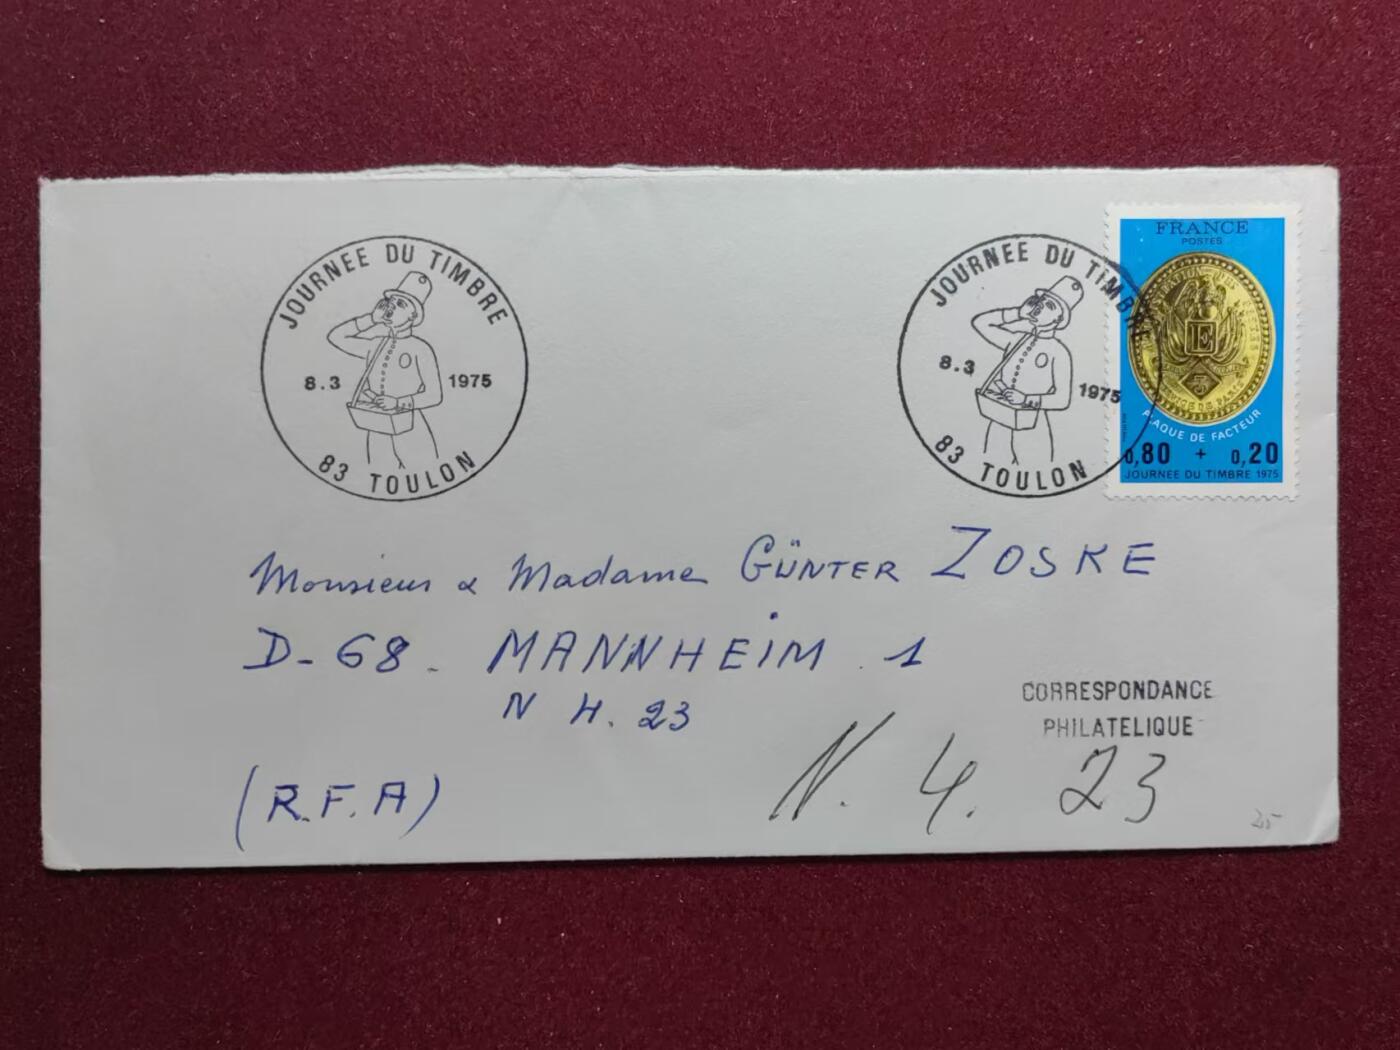 JOURNEE DU TIMBRE
8.3 1975
83 TOULON
JOURNEE DU TIMBRE
8.3 1975
83 TOULON
FRANCE
POSTES
PLAQUE DE FACTEUR
0,80 + 0,20
JOURNEE DU TIMBRE 1975
Monsieur & Madame GÜNTER ZOSKE
D-68- MANNHEIM 1
N 4. 23
CORRESPONDANCE
PHILATELIQUE
N. 4. 23
(R.F.A)
25